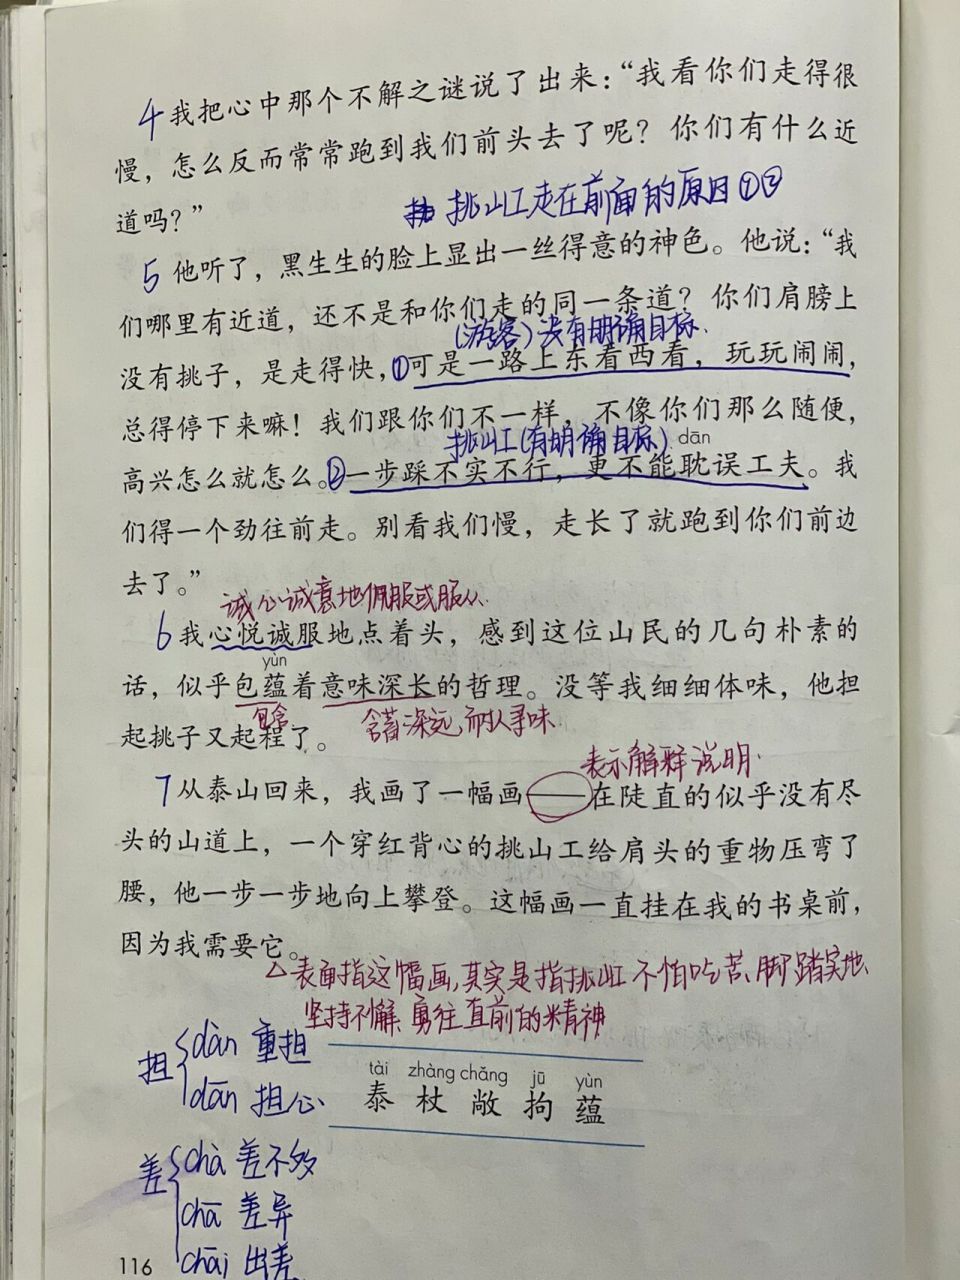 4 我把心中那个不解之谜说了出来：“我看你们走得很
慢，怎么反而常常跑到我们前头去了呢？你们有什么近
道吗？”
挑山工走在前面的原因①②
5 他听了，黑生生的脸上显出一丝得意的神色。他说：“我
们哪里有近道，还不是和你们走的同一条道？你们肩膀上
(游客)没有明确目标.
没有挑子，是走得快，①可是一路上东看西看，玩玩闹闹，
总得停下来嘛！我们跟你们不一样，不像你们那么随便，
挑山工(有明确目标)
dān
高兴怎么就怎么。②一步踩不实不行，更不能耽误工夫。我
们得一个劲往前走。别看我们慢，走长了就跑到你们前边
去了。”
诚心诚意地佩服或服从.
6 我心悦诚服地点着头，感到这位山民的几句朴素的
yùn
话，似乎包蕴着意味深长的哲理。没等我细细体味，他担
包含
含蓄深远，耐人寻味
起挑子又起程了。
表示解释说明.
7 从泰山回来，我画了一幅画——在陡直的似乎没有尽
头的山道上，一个穿红背心的挑山工给肩头的重物压弯了
腰，他一步一步地向上攀登。这幅画一直挂在我的书桌前，
因为我需要它。
△表面指这幅画，其实是指挑山工不怕吃苦、脚踏实地、
坚持不懈、勇往直前的精神
担 dàn 重担
dān 担心
tài zhàng chǎng jū yùn
泰 杖 敞 拘 蕴
差 chà 差不多
chā 差异
chāi 出差
116